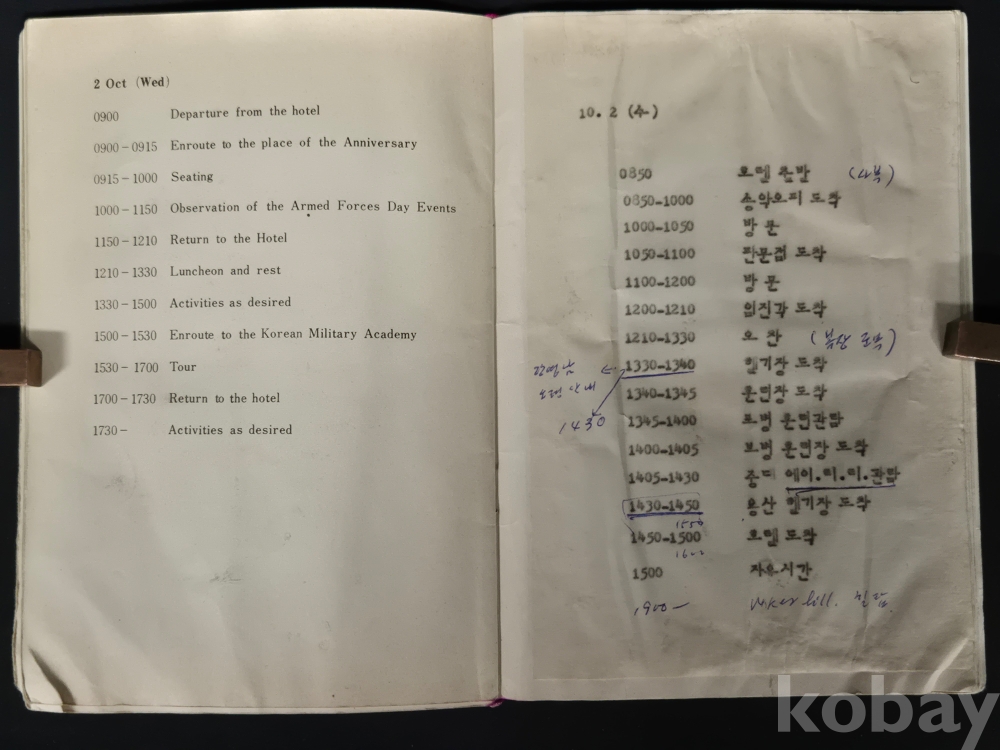 2 Oct (Wed)
0900 Departure from the hotel
0900－0915 Enroute to the place of the Anniversary
0915－1000 Seating
1000－1150 Observation of the Armed Forces Day Events
1150－1210 Return to the Hotel
1210－1330 Luncheon and rest
1330－1500 Activities as desired
1500－1530 Enroute to the Korean Military Academy
1530－1700 Tour
1700－1730 Return to the hotel
1730－ Activities as desired
10. 2 (수)
0850 호텔 출발
0850-1000 송악오피 도착
1000-1050 방 문
1050-1100 판문점 도착
1100-1200 방 문
1200-1210 임진각 도착
1210-1330 오 찬
1330-1340 헬기장 도착
1340-1345 훈련장 도착
1430
1345-1400 포병 훈련관람
1400-1405 보병 훈련장 도착
1405-1430 중대 에이.티.티.관람
1430-1450 용산 헬기장 도착
1550
1450-1500 호텔 도착
1600
1500 자유시간
1900－ hill.
kobay